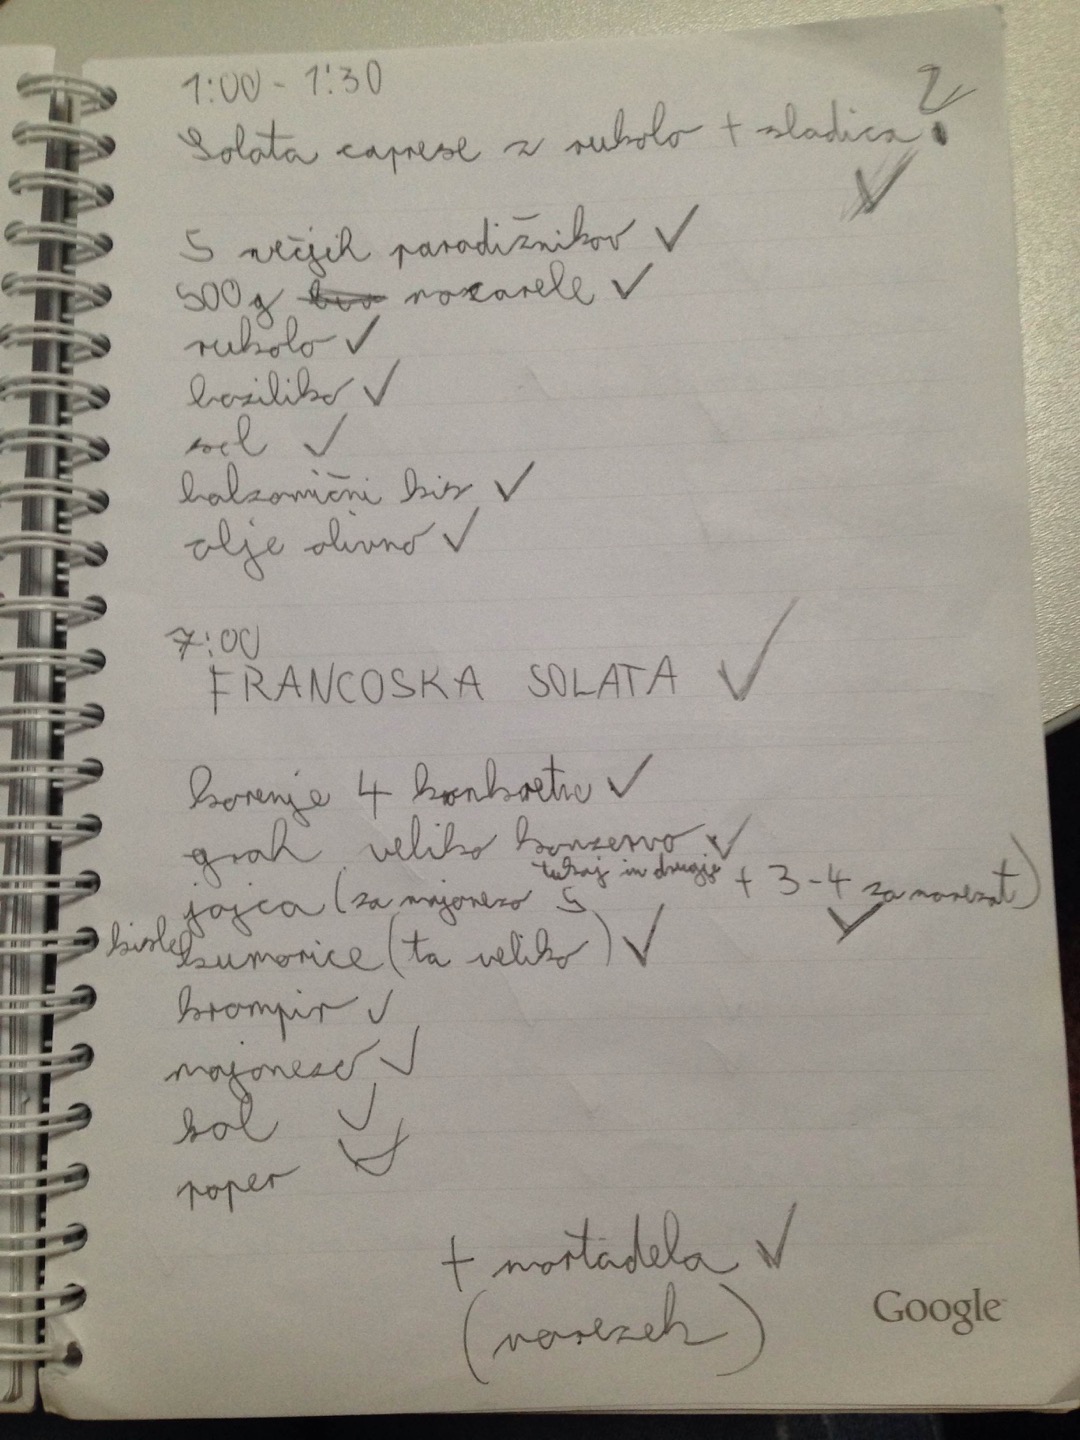 1:00 - 1:30
Solata caprese z rukolo + sladica?
5 večjih paradižnikov ✓
500g mozarele ✓
rukolo ✓
baziliko ✓
sol ✓
balzamični kis ✓
olje olivno ✓
7:00
FRANCOSKA SOLATA ✓
korenje 4 konkretne ✓
grah veliko konzervo ✓
tukaj in drugje
jajca (za majonezo 5 + 3-4 za narezat) ✓
kisle kumarice (ta veliko) ✓
krompir ✓
majonezo ✓
sol ✓
poper ✓
+ mortadela ✓
(narezek)
Google